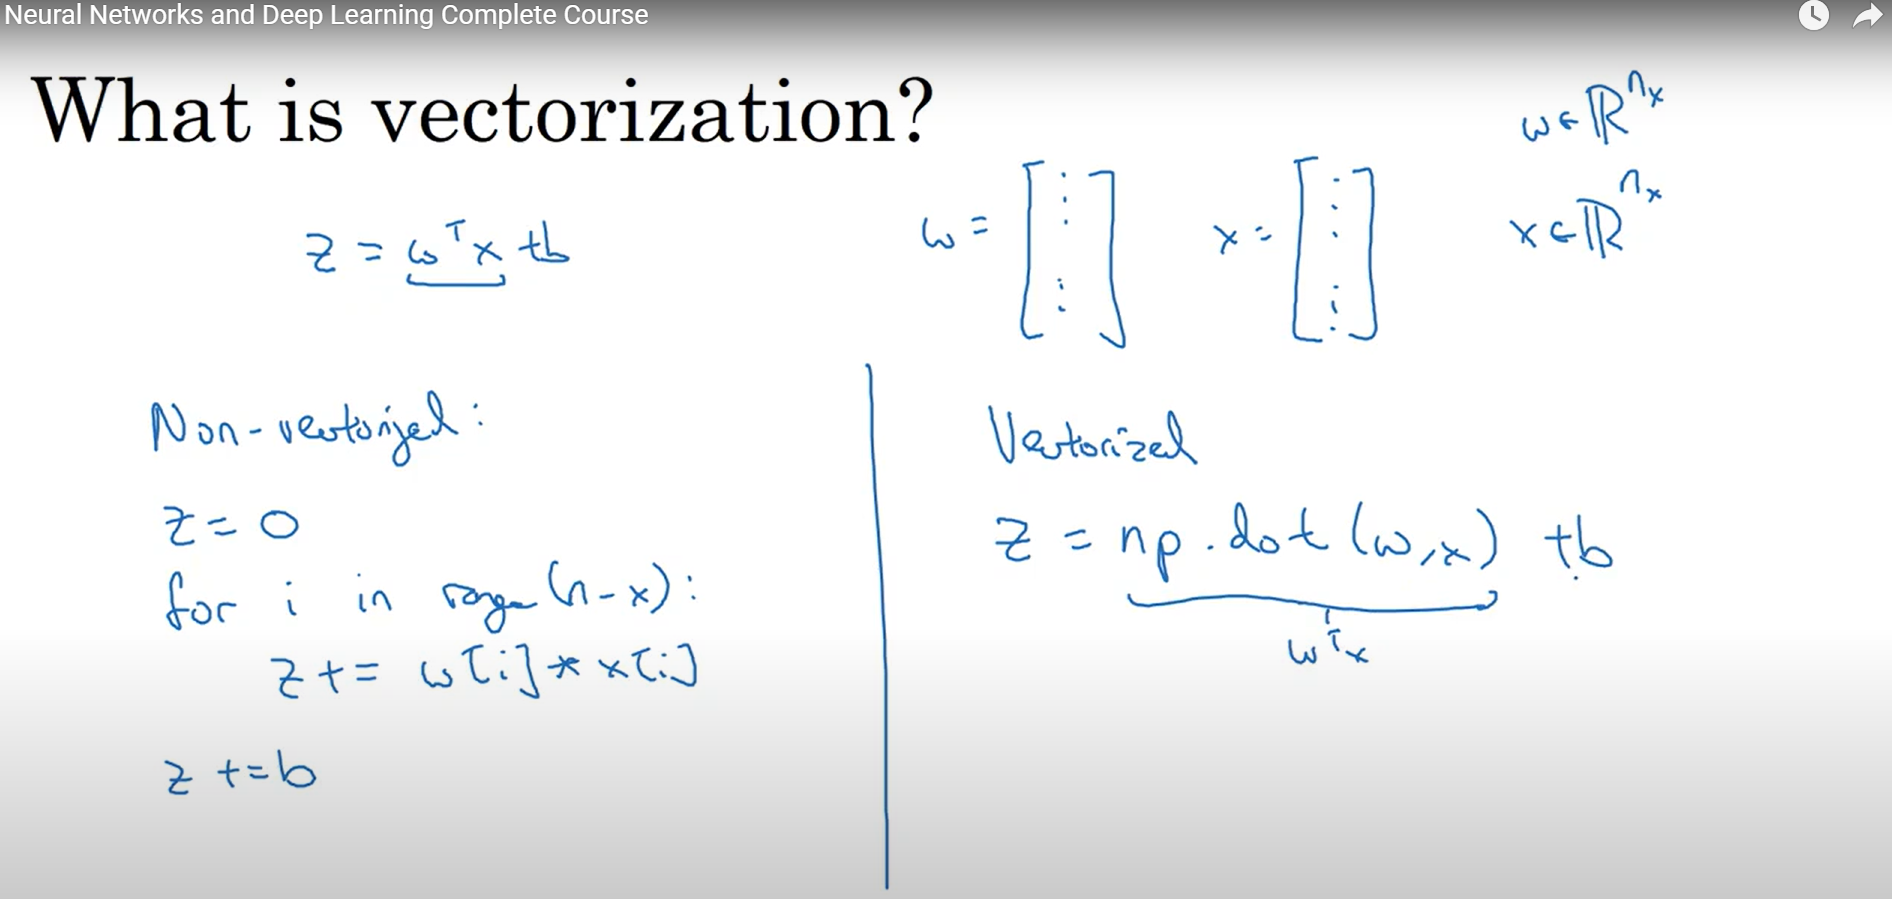 Neural Networks and Deep Learning Complete Course
What is vectorization?
z = wᵀx + b
w = [⋮ ⋮]
x = [⋮ ⋮]
w ∈ ℝⁿˣ
x ∈ ℝⁿˣ
Non-vectorized:
z = 0
for i in range (n-x):
z += w[i] * x[i]
z += b
Vectorized
z = np.dot (w,x) + b
wᵀx